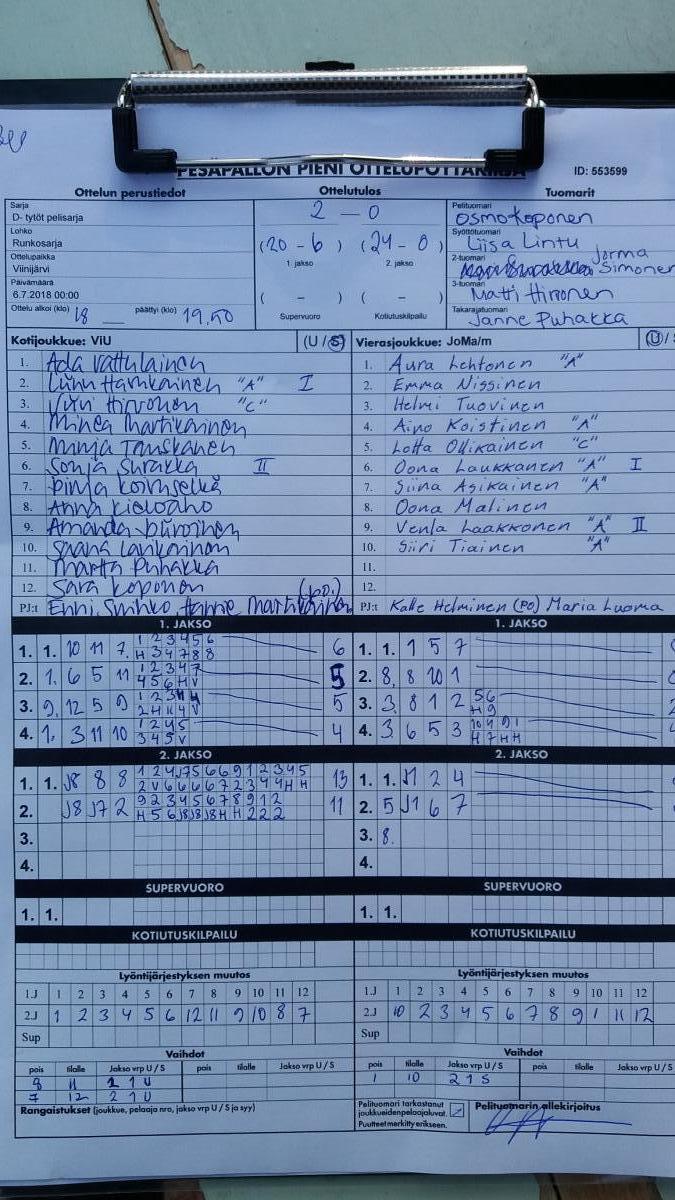 PESÄPALLON PIENI OTTELUPÖYTÄKIRJA ID: 553599
Ottelun perustiedot
Sarja
D- tytöt pelisarja
Lohko
Runkosarja
Ottelupaikka
Viinijärvi
Päivämäärä
6.7.2018 00:00
Ottelu alkoi (klo) 18 päättyi (klo) 19.50
Ottelutulos
2 - 0
(20 - 6) (24 - 0)
1. jakso 2. jakso
( - ) ( - )
Supervuoro Kotiutuskilpailu
Tuomarit
Pelituomari
Osmo Koponen
Syöttötuomari
Liisa Lintu
2-tuomari
Jorma
Simonen
3-tuomari
Matti Hirvonen
Takarajatuomari
Janne Puhakka
Kotijoukkue: ViU (U / S)
1. Ada Vattulainen
2. "A" I
3. Viivi Hirvonen "C"
4. Minea Martikainen
5. Minja Tanskanen
6. Sonja Surakka II
7. Pinja
8. Anna Kieloaho
9. Amanda Piiroinen
10. Saana
11. Martta Puhakka
12. Sara Koponen
PJ:t Enni Hannie Martikainen (po.)
Vierasjoukkue: JoMa/m (U / S
1. Aura Lehtonen "A"
2. Emma Nissinen
3. Helmi Tuovinen
4. Aino Koistinen "A"
5. Lotta Ollikainen "C"
6. Oona Laukkanen "A" I
7. Siina Asikainen "A"
8. Oona Malinen
9. Venla Laakkonen "A" II
10. Siiri Tiainen "A"
11.
12.
PJ:t Kalle Helminen (po) Maria Luoma
1. JAKSO
1. 1. 10 11 7 1 2 3 4 5 6 6
H 3 4 7 8 8
2. 1. 6 5 11 1 2 3 4 7 5
4 5 6 H V
3. 9. 12 5 9 5
4. 1. 3 11 10 1 2 4 5 4
3 4 5 V
1. JAKSO
1. 1. 1 5 7
2. 8. 8 10 1
3. 3. 8 1 2 5 6
H 9
4. 3. 6 5 3 10 4 9 1
H 7 H H
2. JAKSO
1. 1. J8 8 8 1 2 4 J7 5 6 6 9 1 2 3 4 5 13
2 V 6 6 6 6 7 2 3 4 4 H H
2. J8 J7 2 9 2 3 4 5 6 7 8 9 1 2 11
H 5 6 J8 J8 J8 H H 2 2 2
3.
4.
2. JAKSO
1. 1. J1 2 4
2. 5 J1 6 7
3. 8.
4.
SUPERVUORO
1. 1.
SUPERVUORO
1. 1.
KOTIUTUSKILPAILU
Lyöntijärjestyksen muutos
1.J 1 2 3 4 5 6 7 8 9 10 11 12
2.J 1 2 3 4 5 6 12 11 9 10 8 7
Sup
KOTIUTUSKILPAILU
Lyöntijärjestyksen muutos
1.J 1 2 3 4 5 6 7 8 9 10 11 12
2.J 10 2 3 4 5 6 7 8 9 1 11 12
Sup
Vaihdot
pois tilalle Jakso vrp U / S pois tilalle Jakso vrp U / S
8 11 2 1 U
7 12 2 1 U
Vaihdot
pois tilalle Jakso vrp U / S pois tilalle Jakso vrp U / S
1 10 2 1 S
Rangaistukset (joukkue, pelaaja nro, jakso vrp U / S ja syy)
Pelituomari tarkastanut
joukkueiden pelaajaluvat.
Puutteet merkitty erikseen.
Pelituomarin allekirjoitus